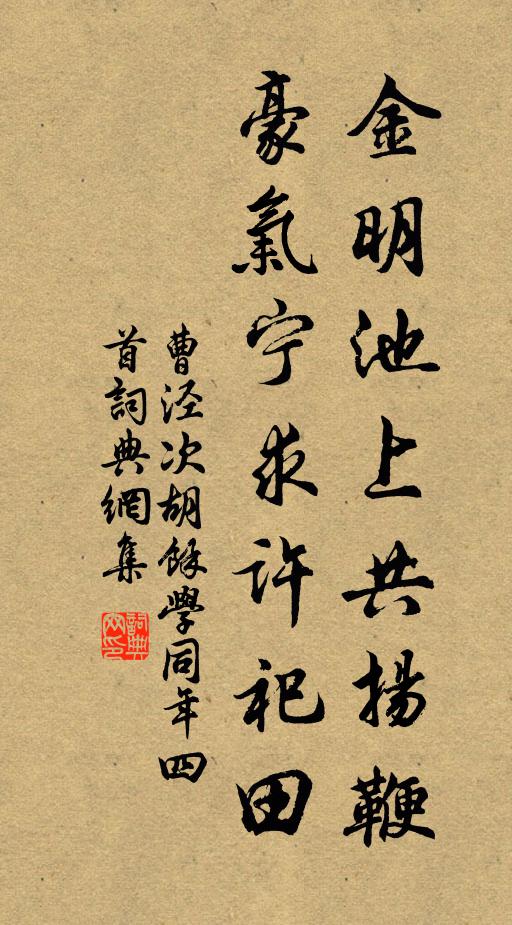 金明池上共揚鞭
豪氣宁求許祀田
曹泾次胡餘學同年四
首詞典網集
詞典網印